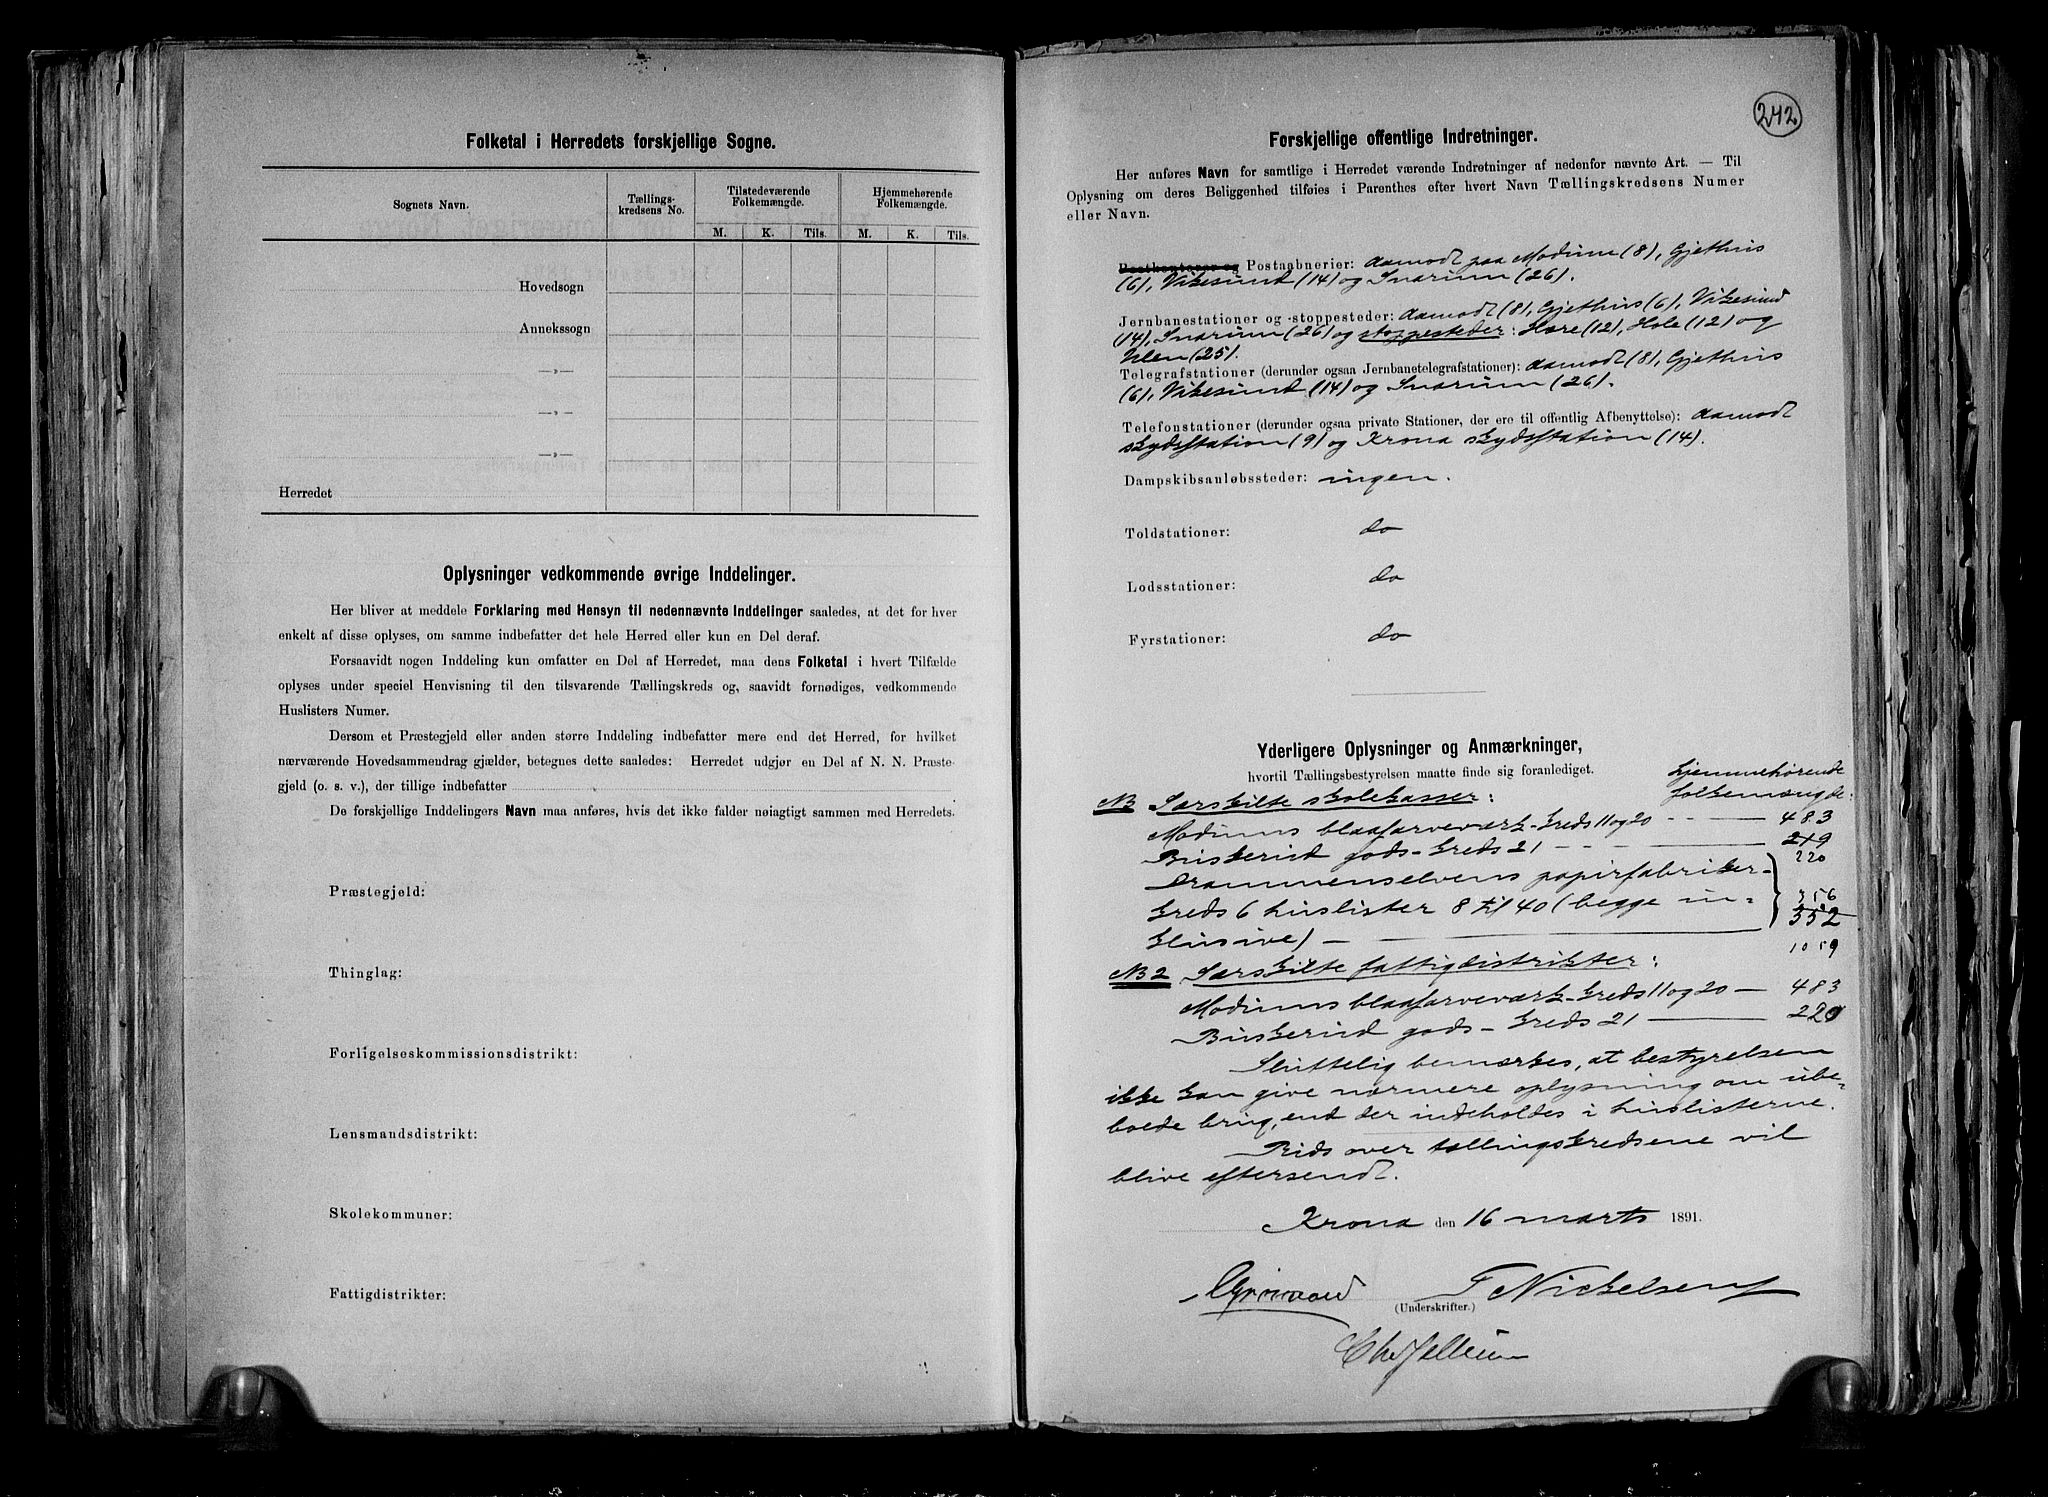 Folketal i Herredets forskjellige Sogne.
Sognets Navn.
Tællings-
kredsens No.
Tilstedeværende
Folkemængde.
Hjemmehørende
Folkemængde.
M. K. Tils. M. K. Tils.
Hovedsogn
Annekssogn
—»—
—»—
—»—
Herredet
Oplysninger vedkommende øvrige Inddelinger.
Her bliver at meddele Forklaring med Hensyn til nedennævnte Inddelinger saaledes, at det for hver
enkelt af disse oplyses, om samme indbefatter det hele Herred eller kun en Del deraf.
Forsaavidt nogen Inddeling kun omfatter en Del af Herredet, maa dens Folketal i hvert Tilfælde
oplyses under speciel Henvisning til den tilsvarende Tællingskreds og, saavidt fornødiges, vedkommende
Huslisters Numer.
Dersom et Præstegjeld eller anden større Inddeling indbefatter mere end det Herred, for hvilket
nærværende Hovedsammendrag gjælder, betegnes dette saaledes: Herredet udgjør en Del af N. N. Præste-
gjeld (o. s. v.), der tillige indbefatter
De forskjellige Inddelingers Navn maa anføres, hvis det ikke falder nøiagtigt sammen med Herredets.
Præstegjeld:
Thinglag:
Forligelseskommissionsdistrikt:
Lensmandsdistrikt:
Skolekommuner:
Fattigdistrikter:
242
Forskjellige offentlige Indretninger.
Her anføres Navn for samtlige i Herredet værende Indretninger af nedenfor nævnte Art. — Til
Oplysning om deres Beliggenhed tilføies i Parenthes efter hvert Navn Tællingskredsens Numer
eller Navn.
Postkontorer og Postaabnerier: Aamodt paa Modum (8), Gjethus
(6), Vikesund (14) og Snarum (26).
Jernbanestationer og -stoppesteder: Aamodt (8), Gjethus (6), Vikesund
(14), Snarum (26) og stoppesteder: Hære (12), Hole (12) og
Ulen (25).
Telegrafstationer (derunder ogsaa Jernbanetelegrafstationer): Aamodt (8), Gjethus
(6), Vikesund (14) og Snarum (26).
Telefonstationer (derunder ogsaa private Stationer, der ere til offentlig Afbenyttelse): Aamodt
skydsstation (9) og Krona skydsstation (14).
Dampskibsanløbssteder: ingen.
Toldstationer: do
Lodsstationer: do
Fyrstationer: do
Yderligere Oplysninger og Anmærkninger,
hvortil Tællingsbestyrelsen maatte finde sig foranlediget.
hjemmehørende
folkemængde:
NB Særskilte skolekasser:
Modums blaafarveværk - kreds 11 og 20 - - 483
Buskerud gods - kreds 21 - - 219
220
Drammenselvens papirfabriker -
kreds 6 huslister 8 til 40 (begge in-
klusive) - 356
552
1059
NB 2 Særskilte fattigdistrikter:
Modums blaafarveværk - kreds 11 og 20 - 483
Buskerud gods - kreds 21 - 220
Sluttelig bemærkes, at bestyrelsen
ikke kan give nærmere oplysning om ube-
boede brug, end der indeholdes i huslisterne.
Rids over tællingskredsene vil
blive eftersendt.
Krona den 16 marts 1891.
T Nickelsen
(Underskrifter.)